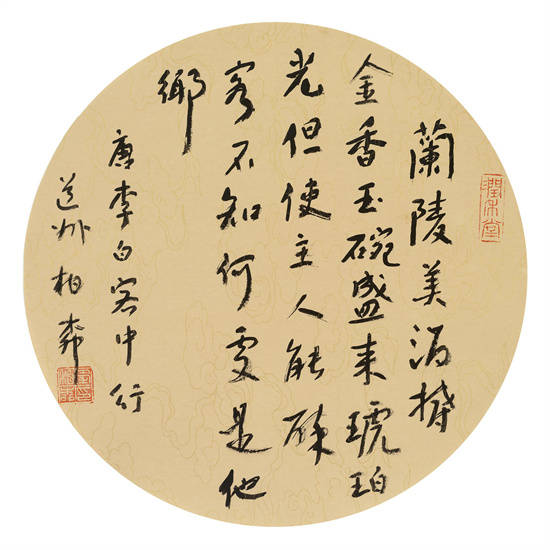 蘭陵美酒欝
金香玉碗盛来琥珀
光但使主人能醉
客不知何處是他
鄉
唐李白客中行
道州柏